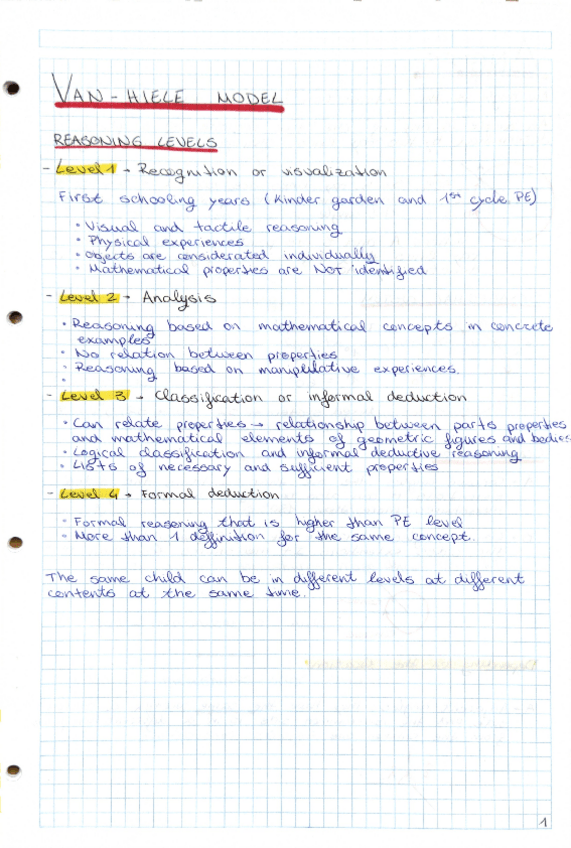 VAN-HIELE MODEL
REASONING LEVELS
- Level 1 → Recognition or visualization
First schooling years (Kinder garden and 1st cycle PE)
• Visual and tactile reasoning
• Physical experiences
• Objects are considerated individually
• Mathematical properties are NOT identified
- Level 2 → Analysis
• Reasoning based on mathematical concepts in concrete
examples
• No relation between properties
• Reasoning based on maniplulative experiences.
•
- Level 3 → Classification or informal deduction
• Can relate properties → relationship between parts properties
and mathematical elements of geometric figures and bodies
• Logical classification and informal deductive reasoning
• Lists of necessary and sufficient properties
- Level 4 → Formal deduction
• Formal reasoning that is higher than PE level
• More than 1 deffinition for the same concept.
The same child can be in different levels at different
contents at the same time.
1